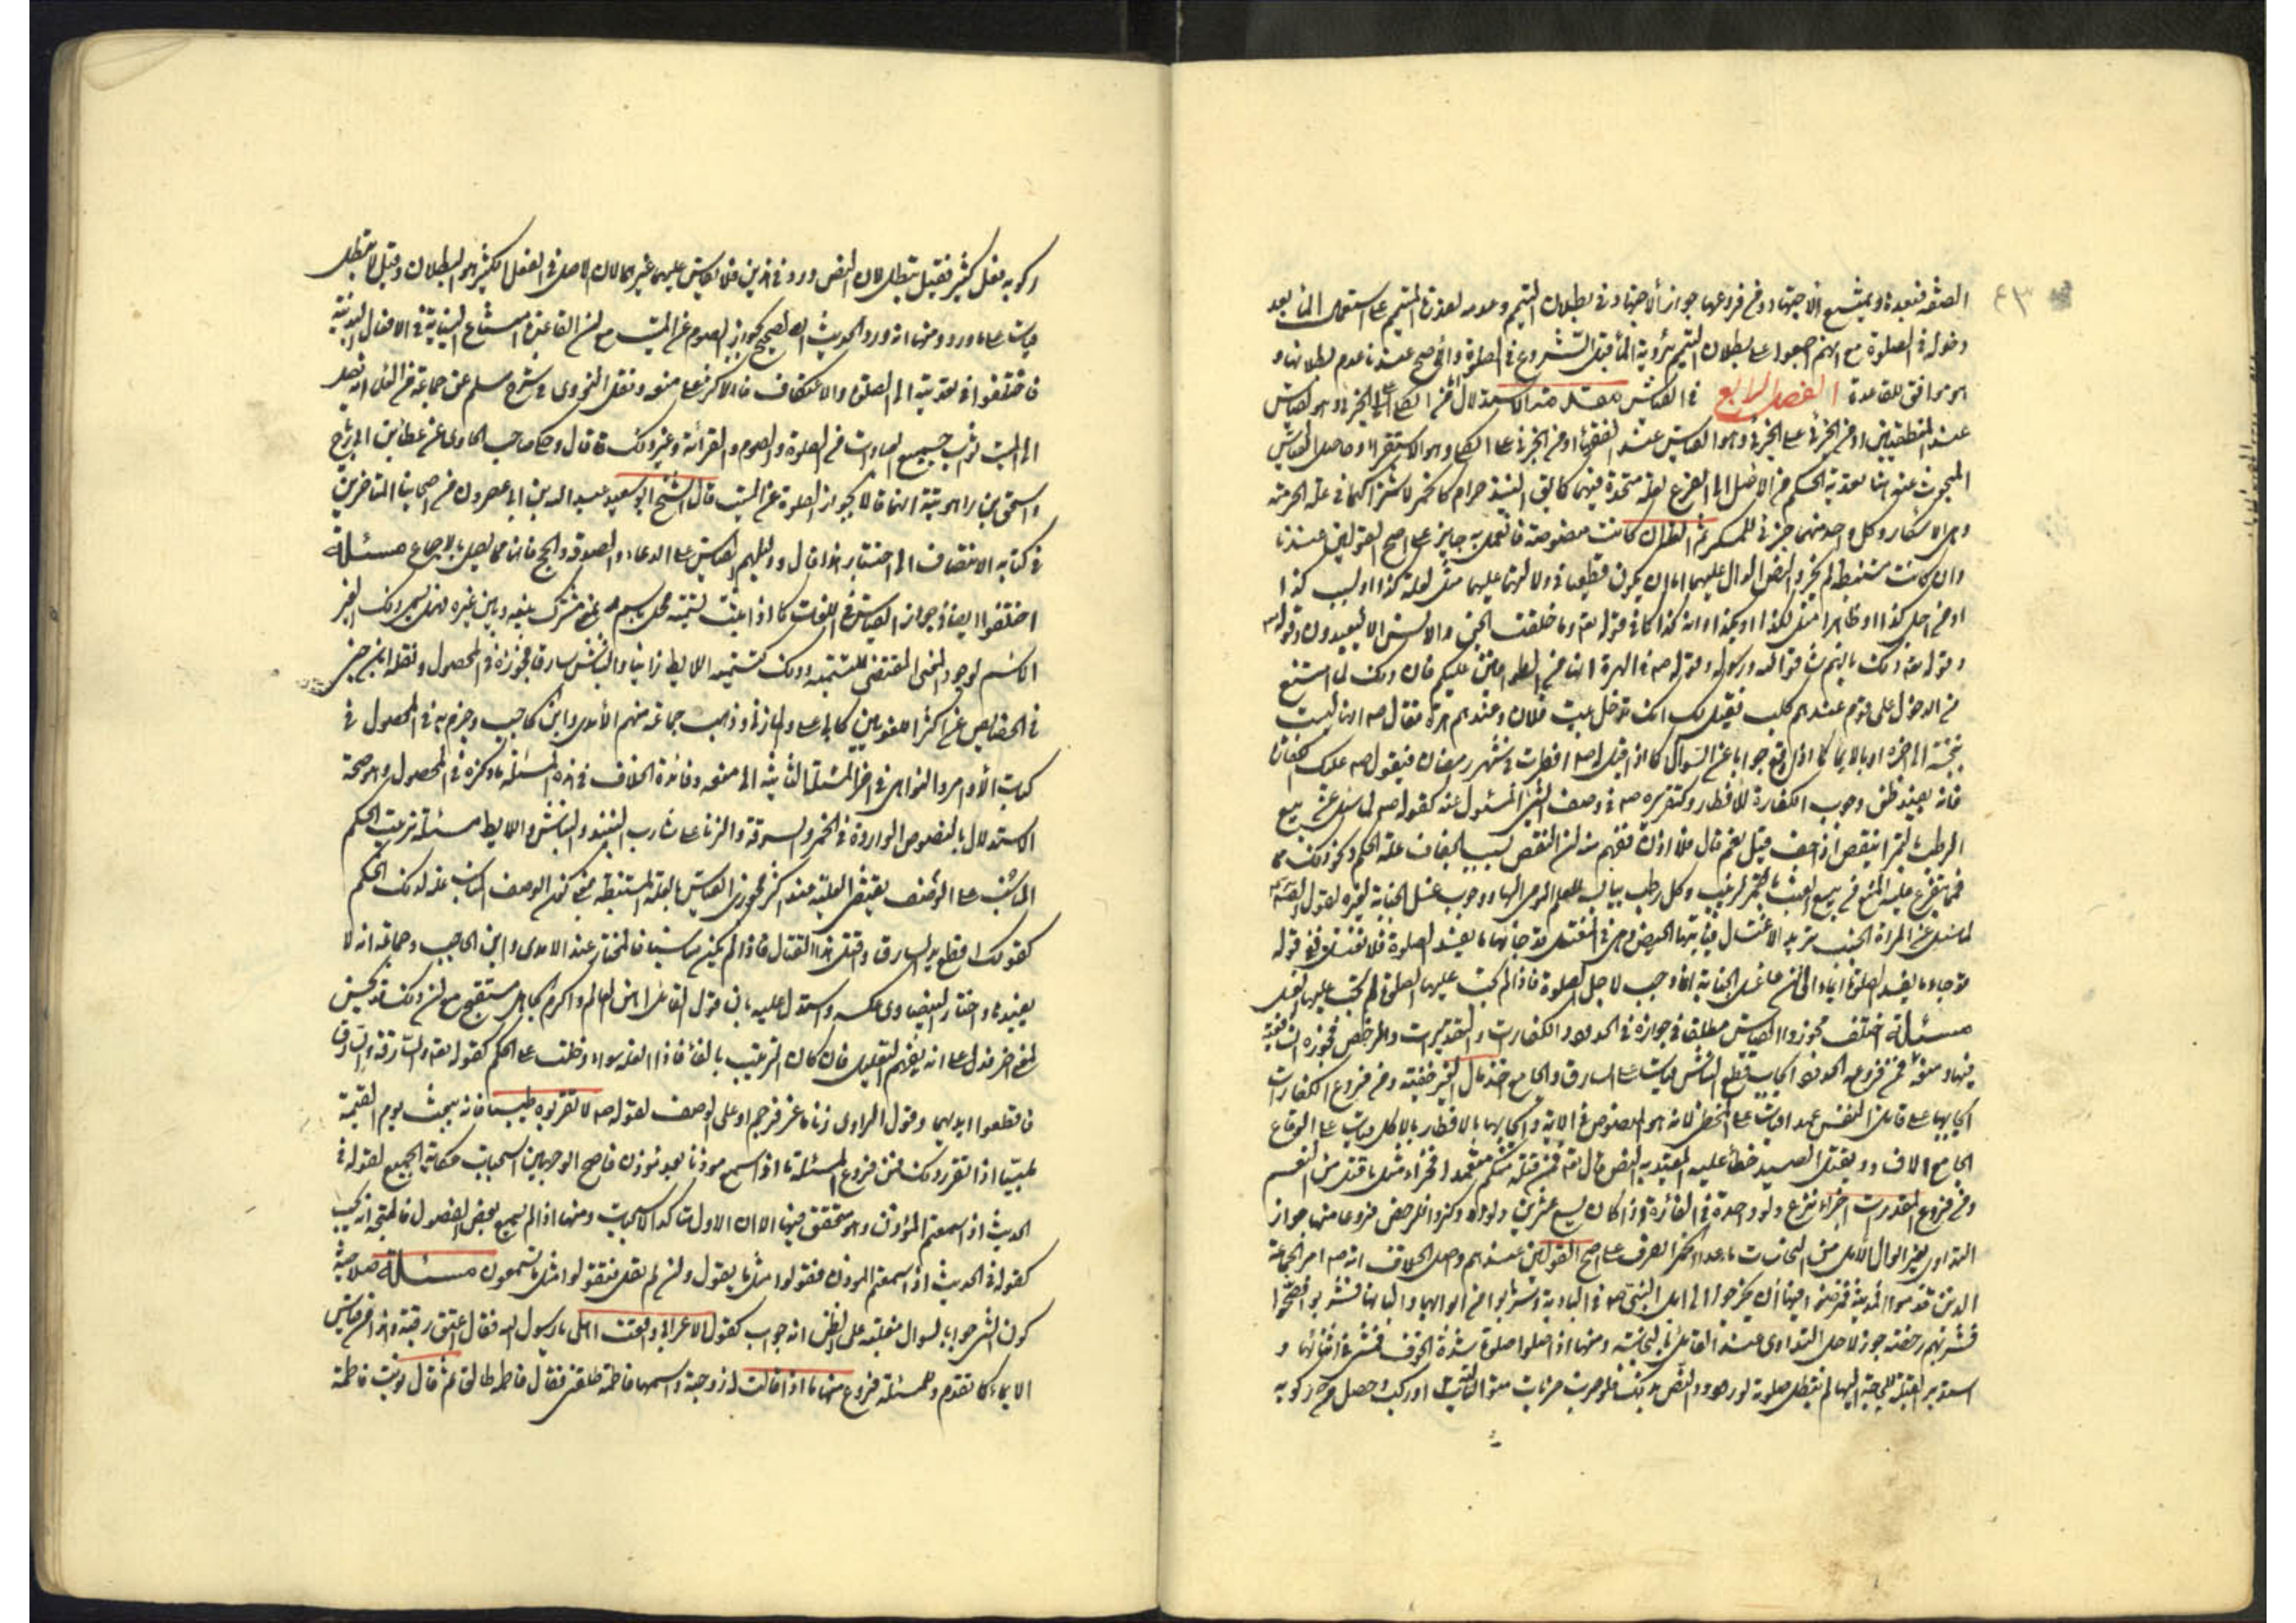 ٤٣
الصفة فيعيد ناو يمتنع الاجتهاد ومن فروعها جواز الاجتهاد في بطلان التيمم وعدمه لعذر المتيمم على استعمال الماء بعد
دخوله في الصلوة مع انهم اجمعوا على بطلان التيمم برؤية الماء قبل الشروع في الصلوة والاصح عندنا عدم بطلانها و
هو موافق للقاعدة الفصل الرابع في القياس مقدمة الاستدلال اما من الكلي على الجزئي وهو القياس
عند المنطقيين او من الجزئي على الجزئي وهو القياس عند الفقهاء او من الجزئي على الكلي وهو الاستقراء وحاصل القياس
المبحوث عنه هنا تعدية الحكم من الاصل الى الفرع لعلة متحدة فيهما كما يق النبيذ حرام كالخمر لاشتراكهما في علة الحرمة
وهي الاسكار وكل واحد منهما جزئي للمسكر ثم العلة ان كانت منصوصة فالعمل به جايز على اصح القولين عندنا
وان كانت مستنبطة لم يجز والنص الدال عليها اما ان يكون قطعيا في دلالته عليها مثل لعلة كذا او لسبب كذا
او من اجل كذا او ظاهرا مثل لكذا او بكذا او ان كذا كما في قوله تع وما خلقت الجن والانس الا ليعبدون وقوله
وقوله تع ذلك بانهم شاقوا الله ورسوله وقوله صه في الهرة انها من الطوافين عليكم فان ذلك لما امتنع
من الدخول على قوم عندهم كلب فقيل له انك تدخل بيت فلان وعندهم هرة فقال صه انها ليست
بنجسة الى اخره او بالايماء كما اذا وقع جوابا عن السؤال كما اذا قيل له افطرت في شهر رمضان فيقول صه عليك الكفارة
فانه يفيد ظن وجوب الكفارة للافطار وكتقريره صه في وصف الشئ المسئول عنه كقوله صه لما سئل عن بيع
الرطب بالتمر اينقص اذا جف قيل نعم قال فلا اذن ففهم منه ان النقص بسبب الجفاف علة الحكم ونحو ذلك مما
فمما يتفرع عليه المنع في بيع العنب بالتمر الزبيب وكل رطب بيابسه للعلة المومى اليها ووجوب غسل الجنابة لغيره لقول الصه
لما سئل عن المراة الجنب تريد الاغتسال فياتيها الحيض وهي في المغتسل قد جائها ما يفسد الصلوة فلا تغتسل ففي قوله
قد جاءها ما يفسد الصلوة ايماء الى ان غسل الجنابة انما وجب لاجل الصلوة فاذا لم تجب عليها الصلوة لم تجب عليها الغسل
مسئلة اختلف مجوزوا القياس مطلقا في جوازه في الحدود والكفارات والتقديرات والرخص فجوزه الشافعية
فيها ومنعه فمن فروعه الحدود ايجاب قطع النباش قياسا على السارق والجامع اخذ مال الغير خفية ومن فروع الكفارات
ايجابها على قاتل النفس عمدا قياسا على الخطا لانه هو المنصوص في الاية وايجابها بالافطار بالاكل قياسا على الوقاع
الجامع الافساد وبقتل الصيد خطأ عليه المعتدبه النص قال تع فمن قتله منكم متعمدا فجزاء مثل ما قتل من النعم
ومن فروع المقدرات اجزاء نزح دلو واحدة في الفأرة اذا كان يسع عشرين دلوا وذكروا للرخص فروعا منها جواز
التداوي بغير ابوال الابل من النجاسات ما عدا الخمر الصرف على اصح القولين عندهم واصل الخلاف انه صه امر الجماعة
الذين قدموا المدينة فمرضوا فيها ان يخرجوا الى ابل النبي صه في البادية ويشربوا من ابوالها والبانها فشربوا فصحوا
فشربهم رخصة جوز لاجل التداوي عند القائل بالنجاسة ومنها اذا صلوا صلوة شدة الخوف فمشى في اثنائها و
استدبر القبلة للحاجة اليها لم تبطل صلوته لورود النص بذلك فلو ضرب ضربات متوالية او ركب وحصل من ركوبه
ركوبه فعل كثير فقيل تبطل لان النص ورد في هذين فلا يقاس عليهما غيرهما لان الاصل في الفعل الكثير هو البطلان وقيل لا تبطل
قياسا على ما ورد ومنها انه ورد الحديث الصحيح بجواز الصوم عن الميت مع ان القاعدة امتناع النيابة في الافعال البدنية
فاختلفوا في تعديته الى الصلوة والاعتكاف فالاكثر على منعه ونقل النووي في شرح مسلم عن جماعة من العلماء انه يصل
الى الميت ثواب جميع العبادات من الصلوة والصوم والقرائة وغير ذلك قال وحكى صاحب الحاوي عن عطا بن ابي رباح
واسحق بن راهويه انهما قالا بجواز الصلوة عن الميت قال الشيخ ابو سعيد عبد الله بن ابي عصرون من اصحابنا المتاخرين
في كتابه الانتصاف الى اختيار هذا قال ودليلهم القياس على الدعاء والصدقة والحج فانها مما يصل بالاجماع مسئلة
اختلفوا ايضا في جواز القياس في اللغات كما اذا عينت لتسمية محل باسم مع معنى مشترك بينه وبين غيره فهل يسمى ذلك الغير
الاسم لوجود المعنى المقتضي للتسمية وذلك كتسمية اللايط زانيا والنباش سارقا فجوزه في المحصول ونقله ابن جني
في الخصايص عن اكثر اللغويين كابي علي والمازني وذهب جماعة منهم الامدي وابن الحاجب وجزم به في المحصول في
كتاب الاوامر والنواهي في اخر المسئلة الثانية الى منعه وفائدة الخلاف في هذه المسئلة ما ذكره في المحصول وهو صحة
الاستدلال بالنصوص الواردة في الخمر والسرقة والزنا على شارب النبيذ والنباش واللايط مسئلة ترتيب الحكم
المناسب على الوصف يقتضي العلية عند اكثر مجوزي القياس بالعلة المستنبطة يعني كون الوصف المناسب علة لذلك الحكم
كقولك اقطع يد السارق واقتل هذا القتال فاذا لم يكن مناسبا فالمختار عند الامدي وابن الحاجب وجماعة انه لا
يفيدها واختار البيضاوي عكسه واستدل عليه بان قول القائل اهن العالم واكرم الجاهل مستقبح مع ان ذلك قد يحسن
لمعنى اخر فدل على انه يفهم التعليل فان كان الترتيب بالفاء فاذا العلة سواء دخلت على الحكم كقوله تع والسارق والسارقة
فاقطعوا ايديهما وقول الراوي زنا ماعز فرجم او على الوصف كقوله صه لا تقربوه طيبا فانه يبعث يوم القيمة
ملبيا اذا تقرر ذلك فمن فروع المسئلة ما اذا سمع موذنا بعد موذن فاصح الوجهين استحباب حكاية الجميع لقوله في
الحديث اذا سمعتم المؤذن وهو متحقق فيها الا ان الاول متاكد الاستحباب ومنها اذا لم يسمع بعض الفصول فالمتجه انه يجيب
كقوله في الحديث اذا سمعتم الموذن فقولوا مثل ما يقول ولم يقل فتقولوا مثل ما تسمعون مسئلة صلاحية
كون الشئ جوابا لسوال مغلبة على الظن انه جواب كقول الاعرابي واقعت اهلي يا رسول الله فقال اعتق رقبة وهذا من قياس
الايماء كما تقدم وللمسئلة فروع منها ما اذا قالت له زوجته واسمها فاطمة طلقني فقال فاطمة طالق ثم قال نويت فاطمة